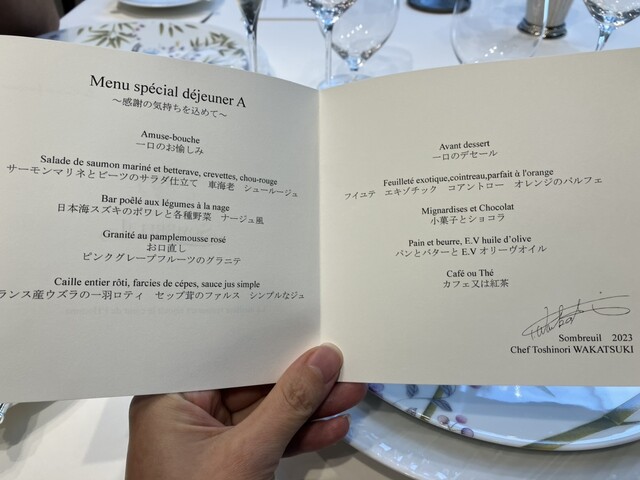 Menu spécial déjeuner A
～感謝の気持ちを込めて～
Amuse-bouche
一口のお愉しみ
Salade de saumon mariné et betterave, crevettes, chou-rouge
サーモンマリネとビーツのサラダ仕立て　車海老　シュールージュ
Bar poêlé aux légumes à la nage
日本海スズキのポワレと各種野菜　ナージュ風
Granité au pamplemousse rosé
お口直し
ピンクグレープフルーツのグラニテ
Caille entier rôti, farcies de cépes, sauce jus simple
ランス産ウズラの一羽ロティ　セップ茸のファルス　シンプルなジュ
Avant dessert
一口のデセール
Feuilleté exotique,cointreau,parfait à l'orange
フイユテ　エキゾチック　コアントロー　オレンジのパルフェ
Mignardises et Chocolat
小菓子とショコラ
Pain et beurre, E.V huile d'olive
パンとバターと E.V オリーヴオイル
Café ou Thé
カフェ又は紅茶
Sombreuil　2023
Chef Toshinori WAKATSUKI